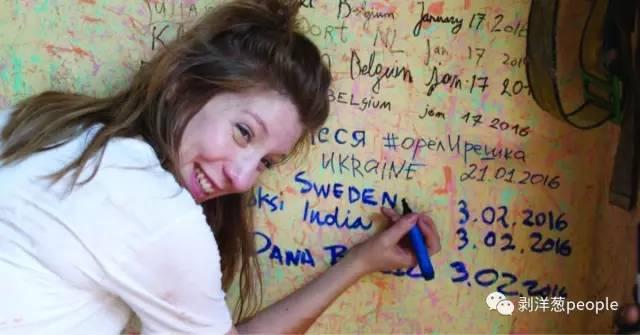 Belgium January 17 2016
NL Jan 17 2016
Belgium Jan: 17 201
BELgium jan 17 2016
леся #орелИрешка
UKRAINE 21.01.2016
SWEDEN 3.02.2016
India 3.02.2016
DANA 3.02.2016
剥洋葱people